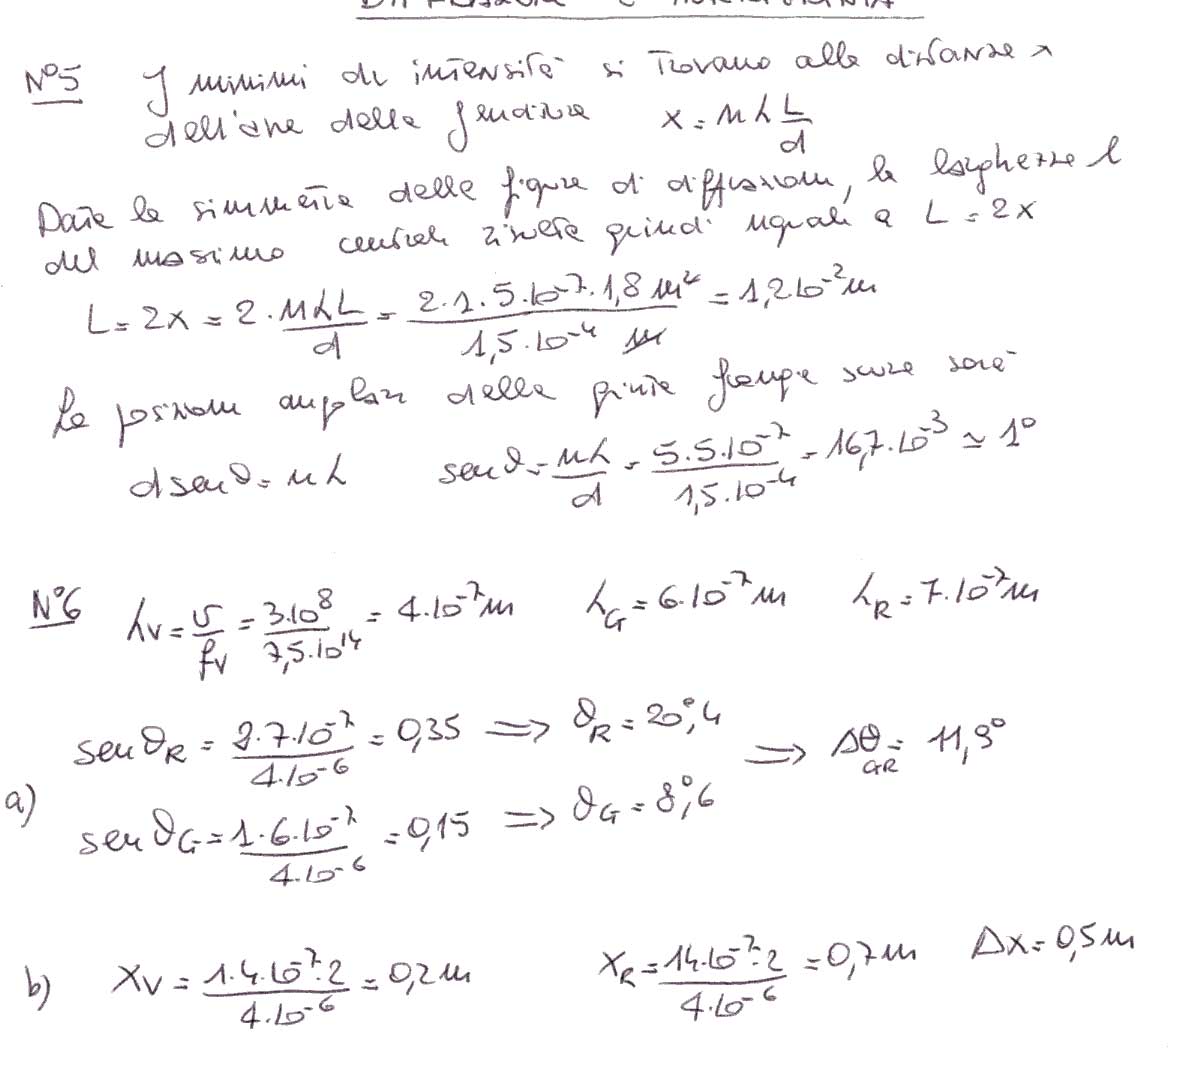 N°5 I minimi di intensità si trovano alle distanze x
dell'asse della fenditura x = nλL/d
Data la simmetria della figura di diffrazione, la larghezza l
del massimo centrale risulta quindi uguale a L = 2x
L = 2x = 2·nλL/d = 2·1·5·10⁻⁷·1,8 m²/1,5·10⁻⁴ m = 1,2 10⁻² m
La posizione angolare della quinta frangia scura sarà
d senϑ = nλ senϑ = nλ/d = 5·5·10⁻⁷/1,5·10⁻⁴ = 16,7·10⁻³ ≃ 1°
N°6 λv = v/fv = 3·10⁸/7,5·10¹⁴ = 4·10⁻⁷ m λG = 6·10⁻⁷ m λR = 7·10⁻⁷ m
senϑR = 2·7·10⁻⁷/4·10⁻⁶ = 0,35 ⟹ ϑR = 20°,4
a) ⟹ ΔθGR = 11,9°
senϑG = 1·6·10⁻⁷/4·10⁻⁶ = 0,15 ⟹ ϑG = 8°,6
b) xV = 1·4·10⁻⁷·2/4·10⁻⁶ = 0,2 m xR = 14·10⁻⁷·2/4·10⁻⁶ = 0,7 m Δx = 0,5 m